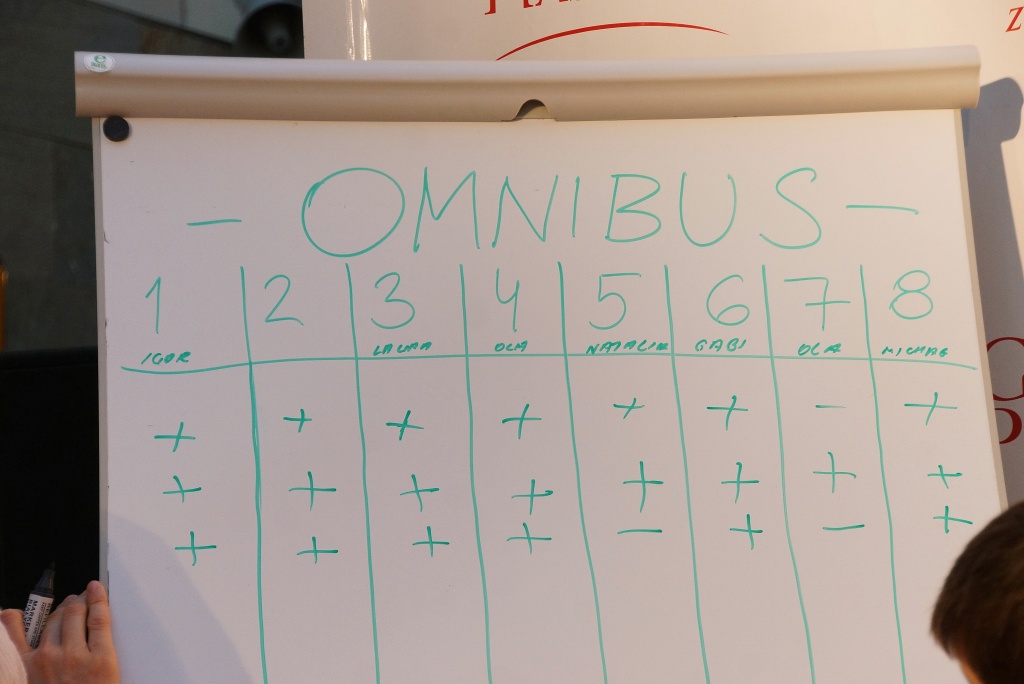 - OMNIBUS -
1 2 3 4 5 6 7 8
IGOR LAURA OLA NATALIA GABI OLA MICHAŁ
+ + + + + + - +
+ + + + + + + +
+ + + + - + - +
MARKER